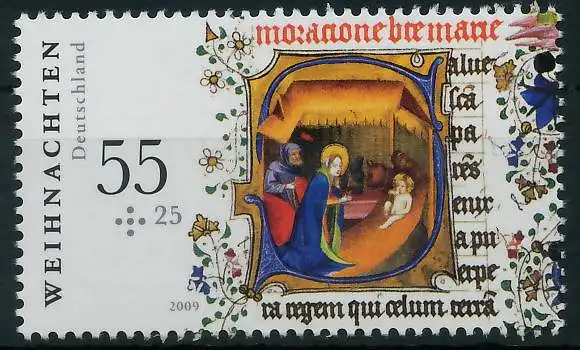 WEIHNACHTEN
Deutschland
55
+25
2009
moracione bte marie
alue
sca
pa
rēs
enix
a pu
erpe
ra regem qui celum terrā